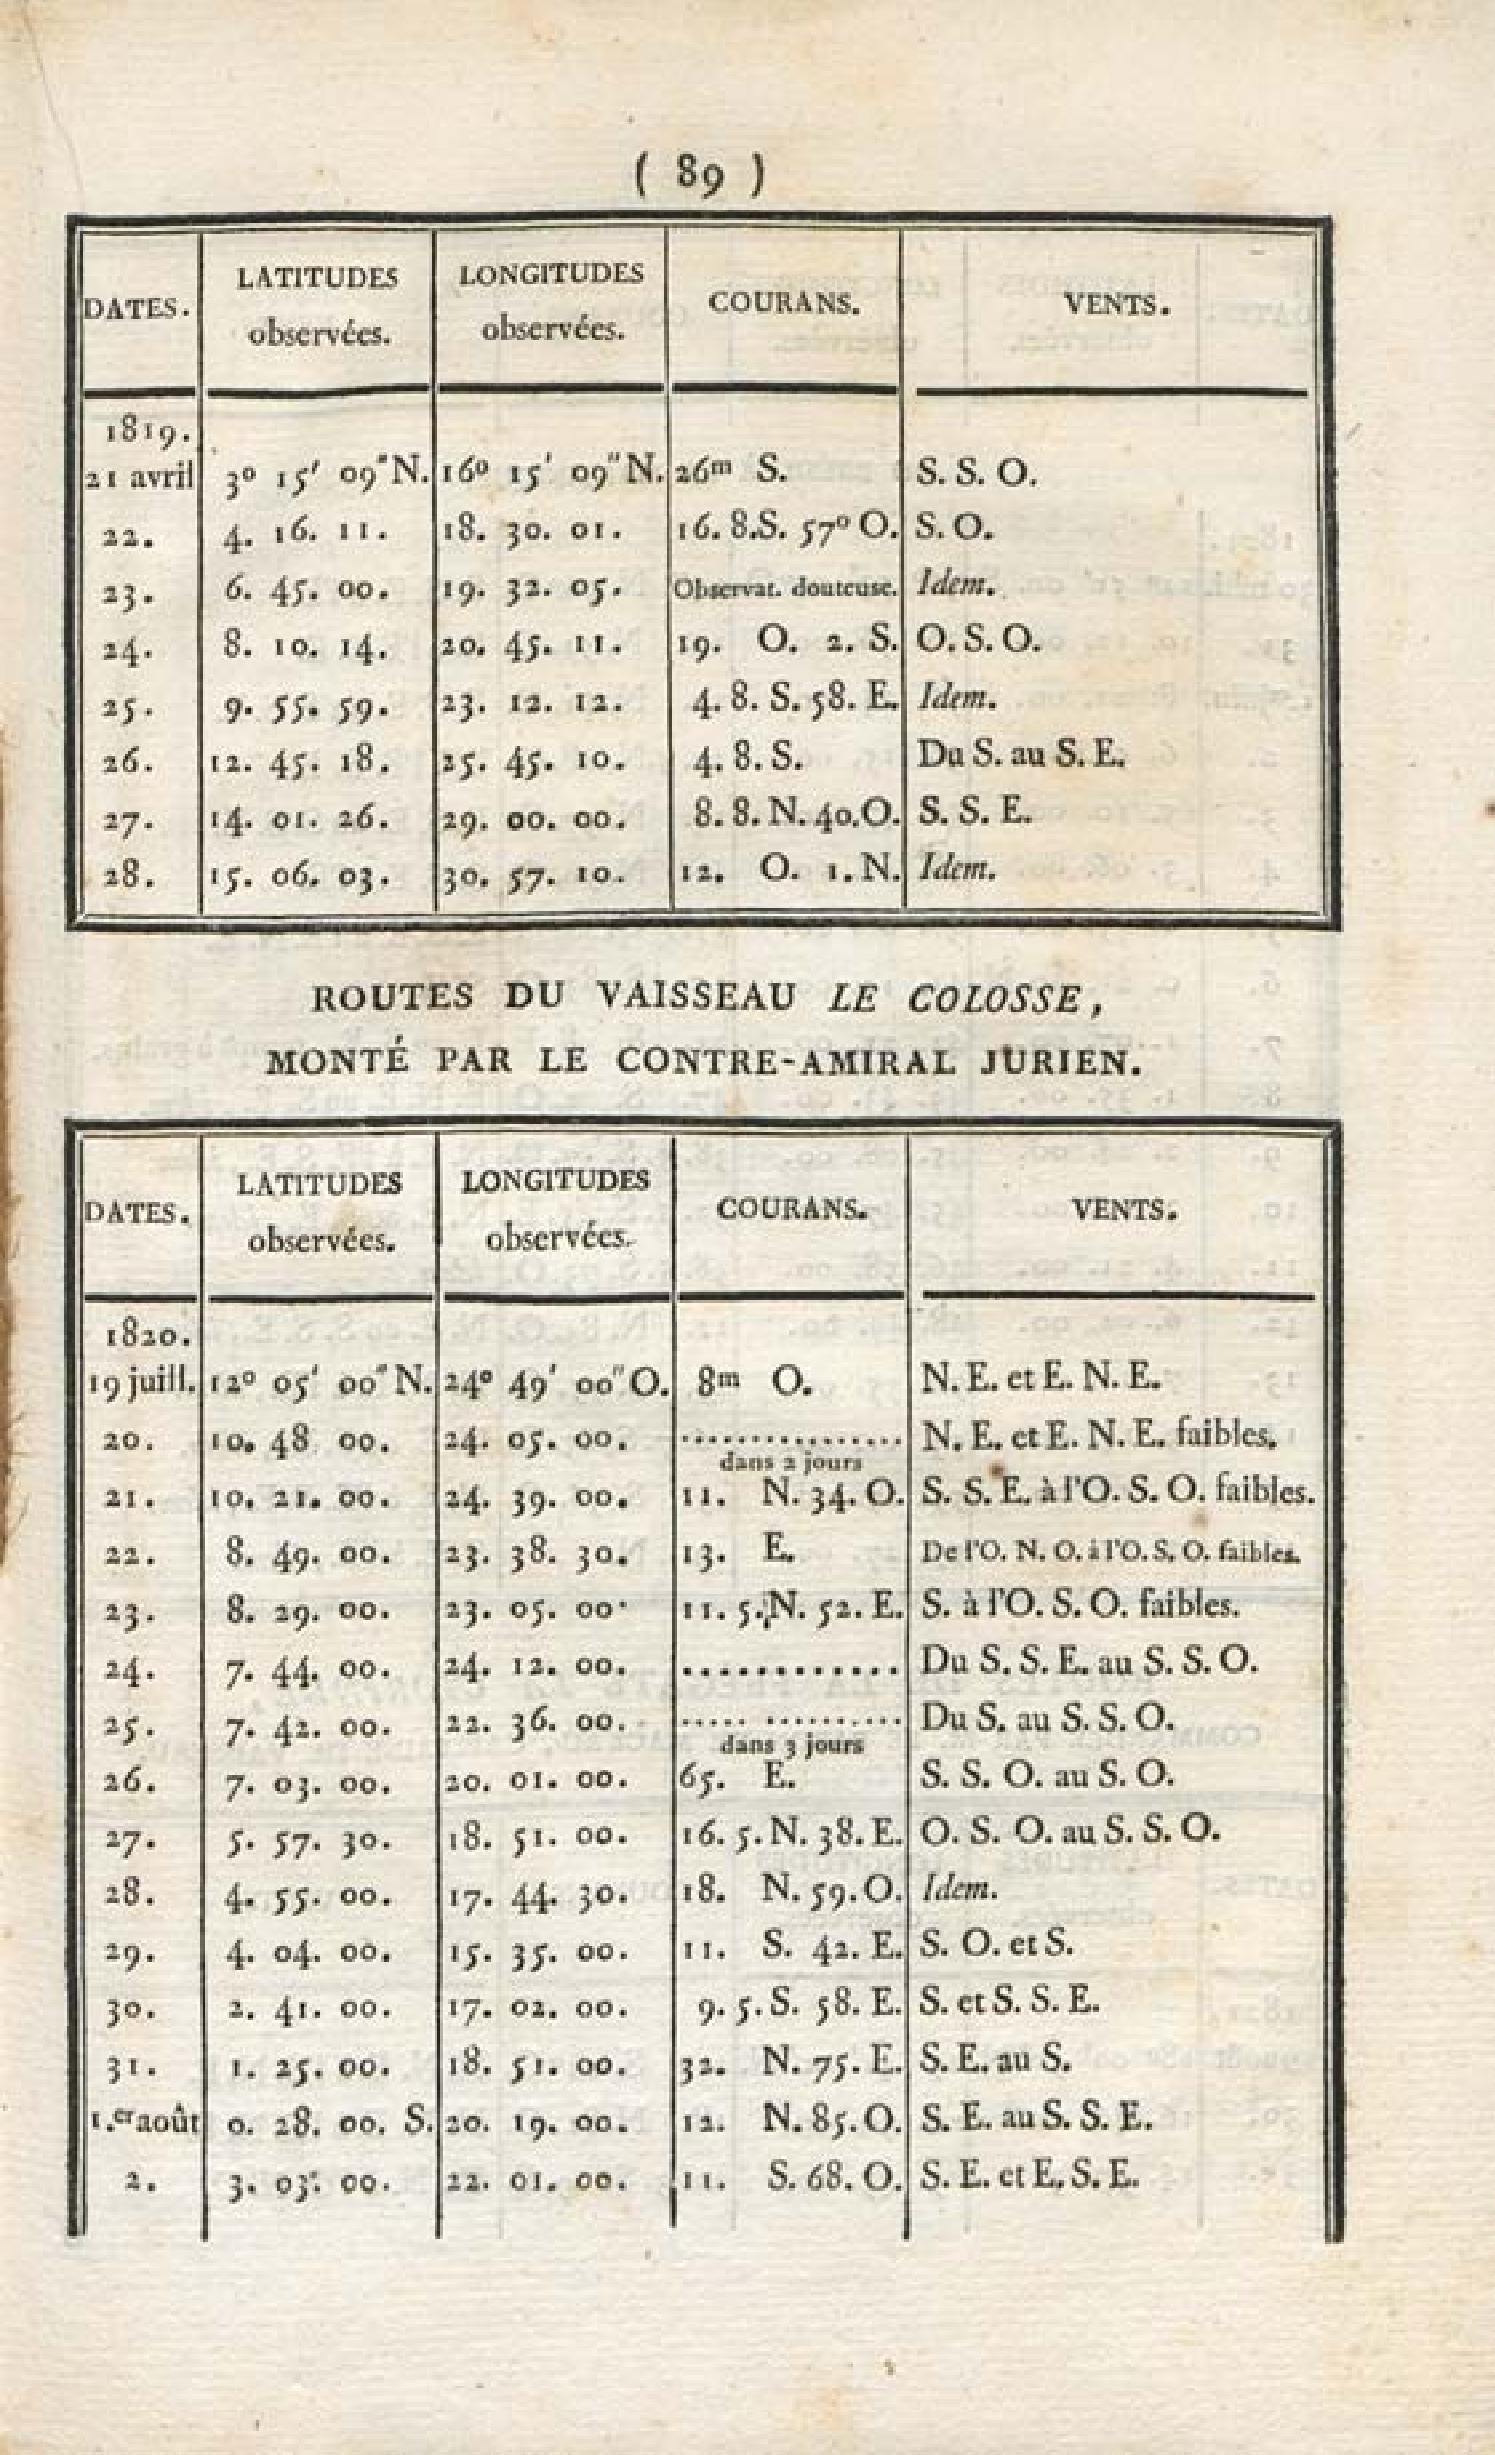 ( 89 )
DATES. LATITUDES observées. LONGITUDES observées. COURANS. VENTS.
1819.
21 avril 3° 15' 09" N. 16° 15' 09" N. 26m S. S. S. O.
22. 4. 16. 11. 18. 30. 01. 16. 8. S. 57° O. S. O.
23. 6. 45. 00. 19. 32. 05. Observat. douteuse. Idem.
24. 8. 10. 14. 20. 45. 11. 19. O. 2. S. O. S. O.
25. 9. 55. 59. 23. 12. 12. 4. 8. S. 58. E. Idem.
26. 12. 45. 18. 25. 45. 10. 4. 8. S. Du S. au S. E.
27. 14. 01. 26. 29. 00. 00. 8. 8. N. 40. O. S. S. E.
28. 15. 06. 03. 30. 57. 10. 12. O. 1. N. Idem.
ROUTES DU VAISSEAU LE COLOSSE,
MONTÉ PAR LE CONTRE-AMIRAL JURIEN.
DATES. LATITUDES observées. LONGITUDES observées. COURANS. VENTS.
1820.
19 juill. 12° 05' 00" N. 24° 49' 00" O. 8m O. N. E. et E. N. E.
20. 10. 48 00. 24. 05. 00. ................ N. E. et E. N. E. faibles.
dans 2 jours
21. 10. 21. 00. 24. 39. 00. 11. N. 34. O. S. S. E. à l'O. S. O. faibles.
22. 8. 49. 00. 23. 38. 30. 13. E. De l'O. N. O. à l'O. S. O. faibles.
23. 8. 29. 00. 23. 05. 00. 11. 5. N. 52. E. S. à l'O. S. O. faibles.
24. 7. 44. 00. 24. 12. 00. ............ Du S. S. E. au S. S. O.
25. 7. 42. 00. 22. 36. 00. ..... .......... Du S. au S. S. O.
dans 3 jours
26. 7. 03. 00. 20. 01. 00. 65. E. S. S. O. au S. O.
27. 5. 57. 30. 18. 51. 00. 16. 5. N. 38. E. O. S. O. au S. S. O.
28. 4. 55. 00. 17. 44. 30. 18. N. 59. O. Idem.
29. 4. 04. 00. 15. 35. 00. 11. S. 42. E. S. O. et S.
30. 2. 41. 00. 17. 02. 00. 9. 5. S. 58. E. S. et S. S. E.
31. 1. 25. 00. 18. 51. 00. 32. N. 75. E. S. E. au S.
1.er août 0. 28. 00. S. 20. 19. 00. 12. N. 85. O. S. E. au S. S. E.
2. 3. 03. 00. 22. 01. 00. 11. S. 68. O. S. E. et E. S. E.